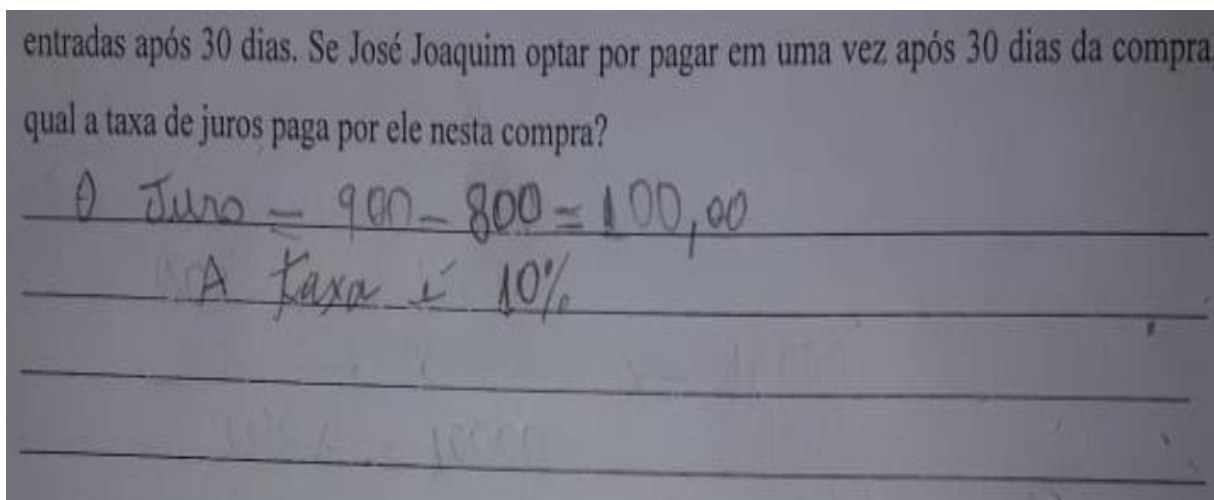 entradas após 30 dias. Se José Joaquim optar por pagar em uma vez após 30 dias da compra,
qual a taxa de juros paga por ele nesta compra?
O Juro = 900 - 800 = 100,00
A taxa é 10%